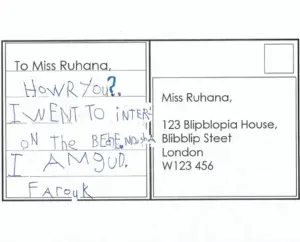 To Miss Ruhana,
How R You?.
I WENT TO
ON The
I AM GUD.
FArouk
Miss Ruhana,
123 Blipblopia House,
Blibblip Steet
London
W123 456